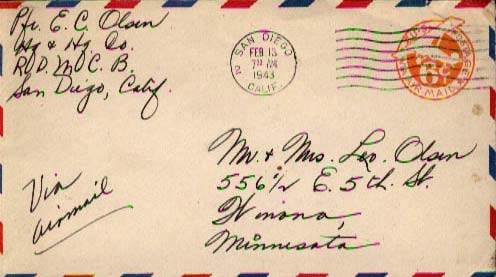 Pfc. E. C. Olsen
Hq & Hq. Co.
R.D. M.C.B.
San Diego, Calif.
SAN DIEGO
2
FEB 13
7 30 AM
1943
CALIF.
UNITED STATES POSTAGE
6¢
AIR MAIL
Via
airmail
Mr. & Mrs. Leo. Olsen
556 1/2 E. 5th. St.
Winona,
Minnesota